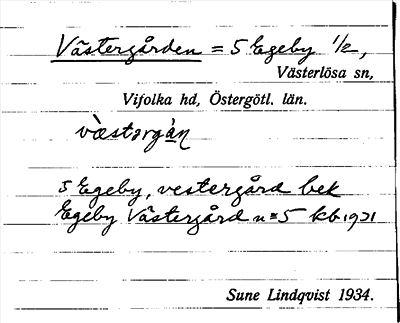 Västergården = 5 Egeby 1/2,
Västerlösa sn,
Vifolka hd, Östergötl. län.
väst
5 Egeby, vestergård bek
Egeby Västergård n=5 kb 1921
Sune Lindqvist 1934.